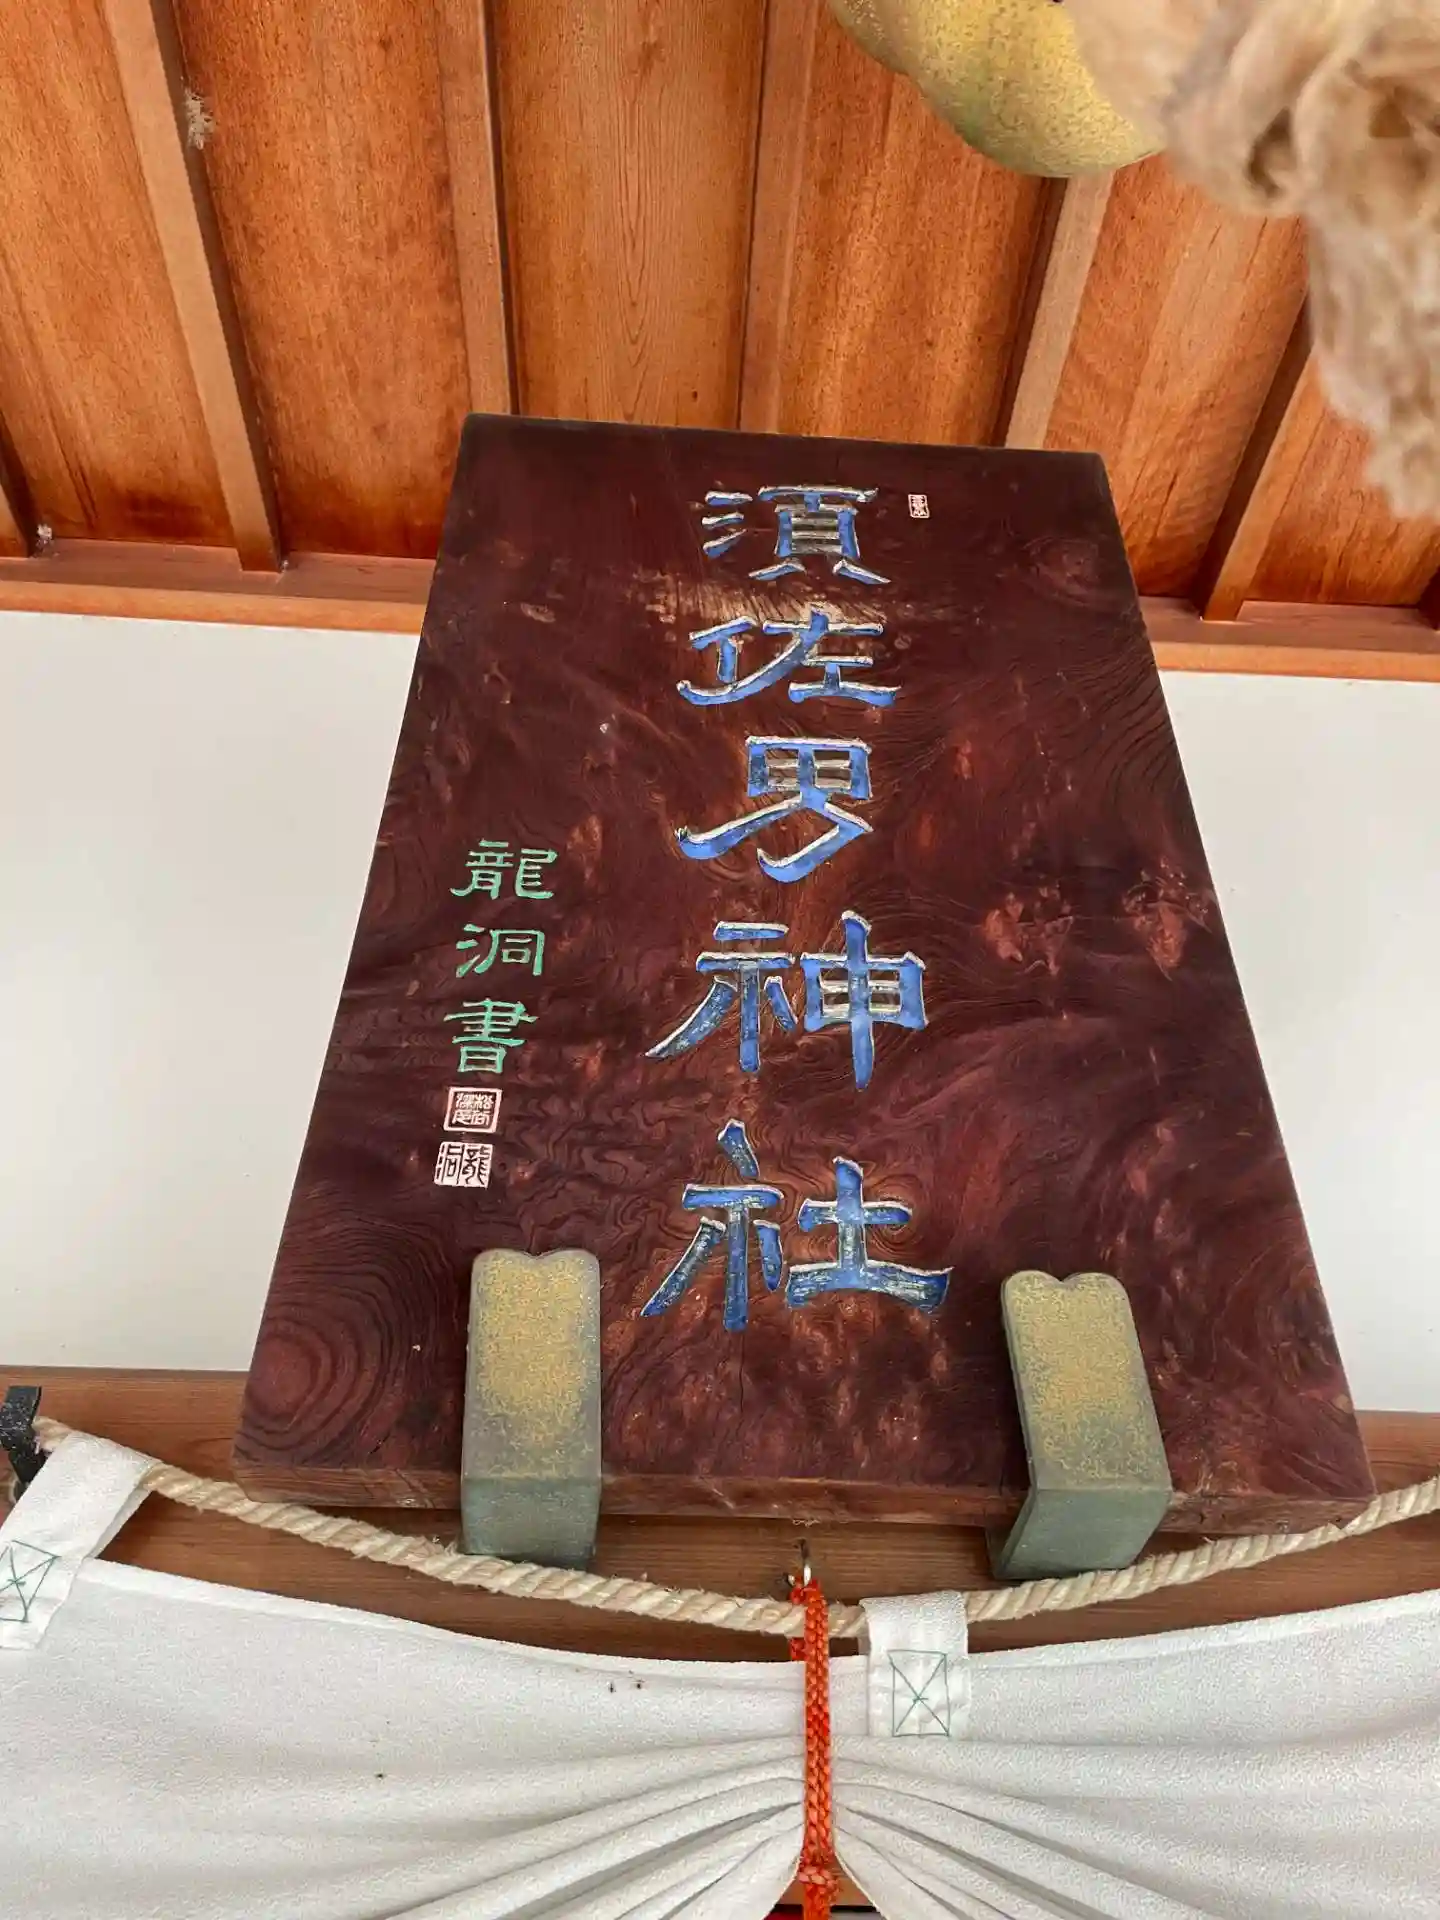 須佐男神社
龍洞書
龍洞